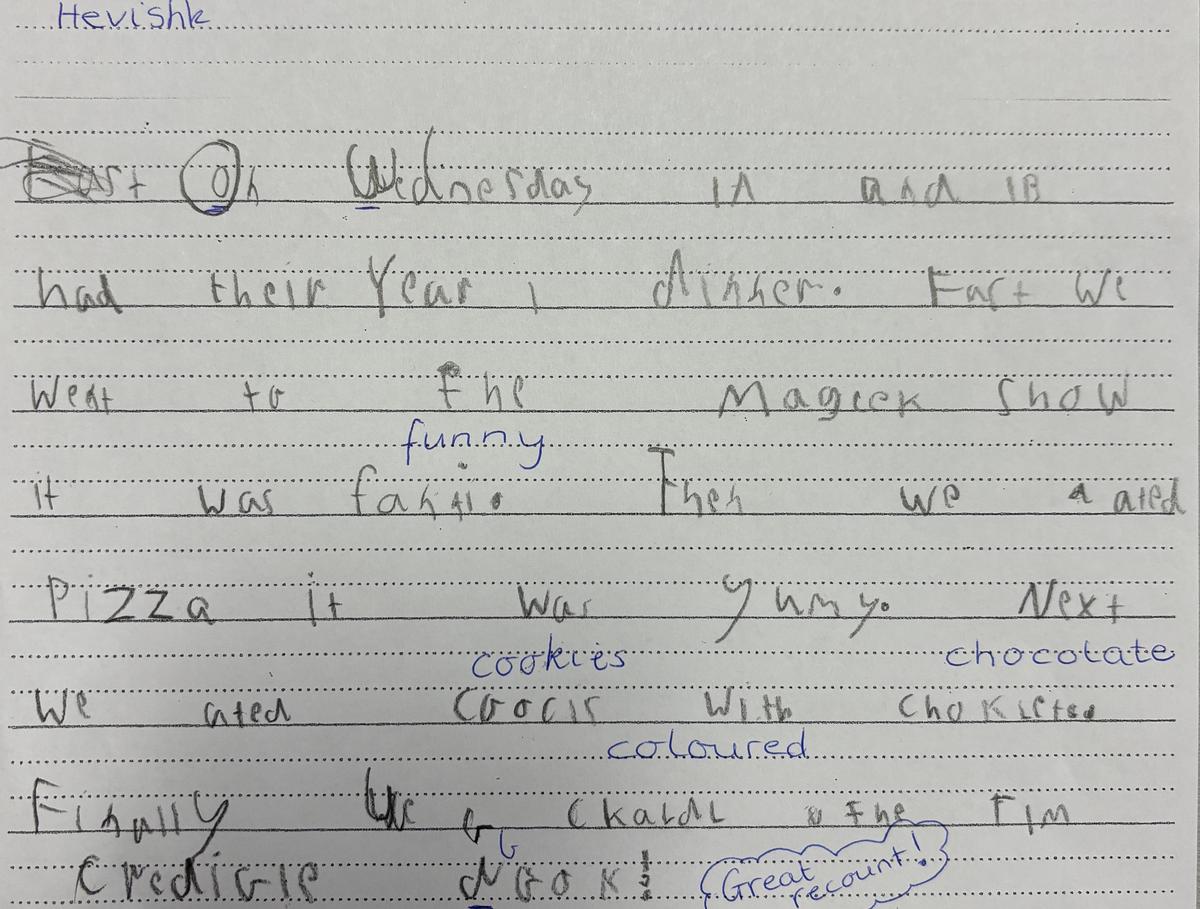 Hevishk
On Wednesday 1A and 1B
had their Year 1 dinner. Fast We
Went to the Mageek Show
funny
it was fanni. Then we a ated
Pizza it was yumy. Next
cookies chocotate
We ated Coocis With
coloured
Finally We the TIM
Credible
Great
recount!